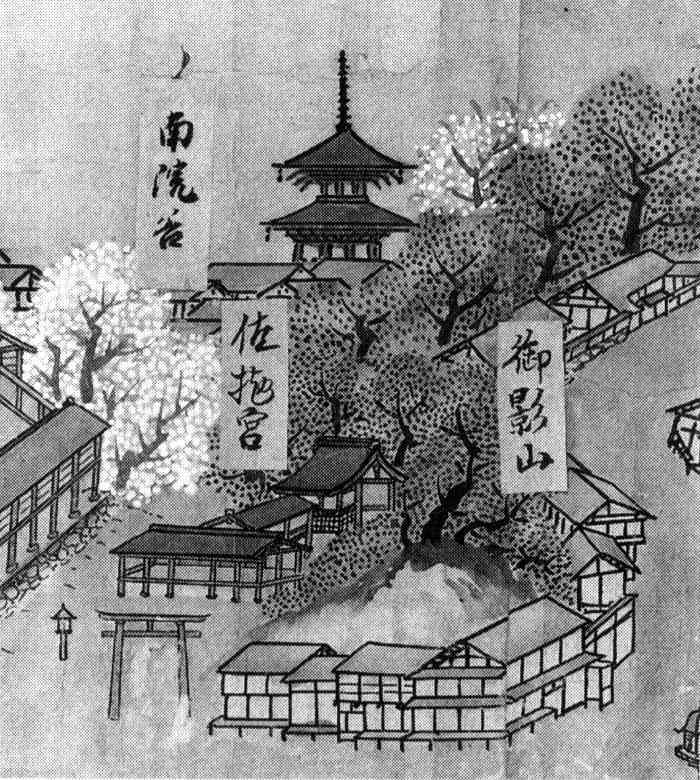 御影山
佐抛宮
南院谷